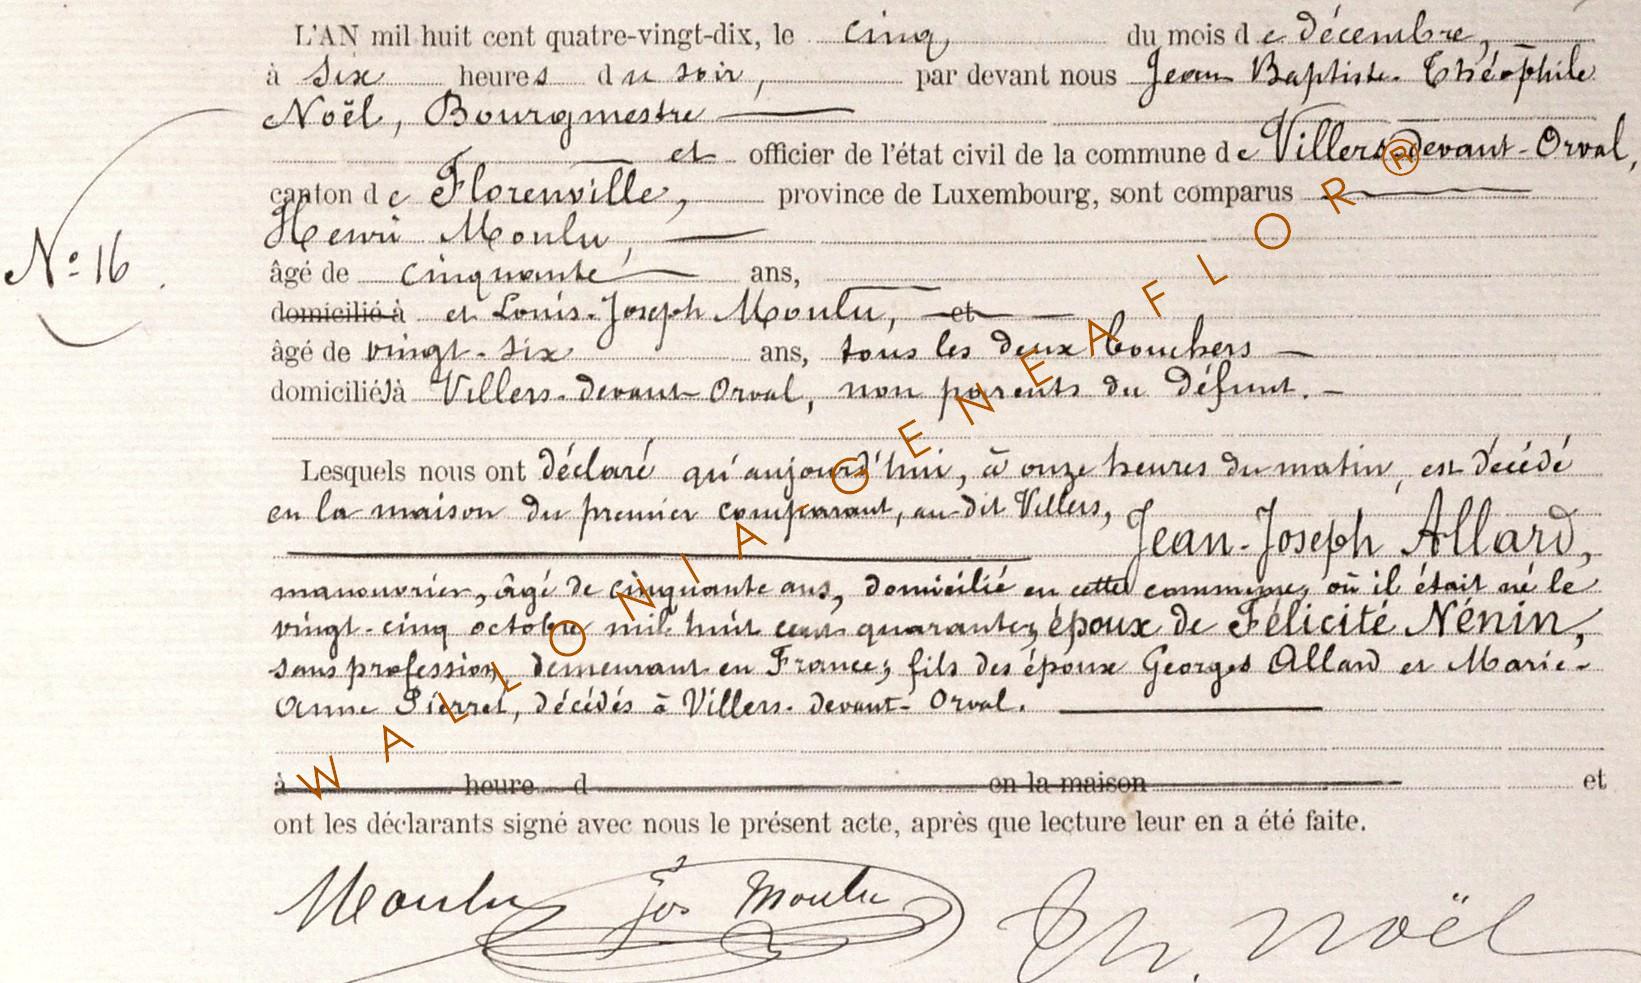 L'AN mil huit cent quatre-vingt-dix, le cinq du mois de décembre,
à six heures du soir, par devant nous Jean Baptiste Théophile
Noël, Bourgmestre
et officier de l'état civil de la commune de Villers-devant-Orval,
canton de Florenville, province de Luxembourg, sont comparus
Henri Moulu,
N° 16
âgé de cinquante ans,
domicilié à et Louis-Joseph Moulu, et
âgé de vingt-six ans, tous les deux bouchers
domiciliés à Villers-devant-Orval, non parents du défunt.
Lesquels nous ont déclaré qu'aujourd'hui, à onze heures du matin, est décédé
en la maison du premier comparant, au-dit Villers, Jean-Joseph Allard,
manouvrier, âgé de cinquante ans, domicilié en cette commune, où il était né le
vingt-cinq octobre mil huit cent quarante, époux de Félicité Nénin,
sans profession, demeurant en France; fils des époux Georges Allard et Marie-
Anne Pierret, décédés à Villers-devant-Orval.
à heure d en la maison et
ont les déclarants signé avec nous le présent acte, après que lecture leur en a été faite.
Moulu Jos Moulu Th. Noël
WALLONIA-GENEAFLOR®